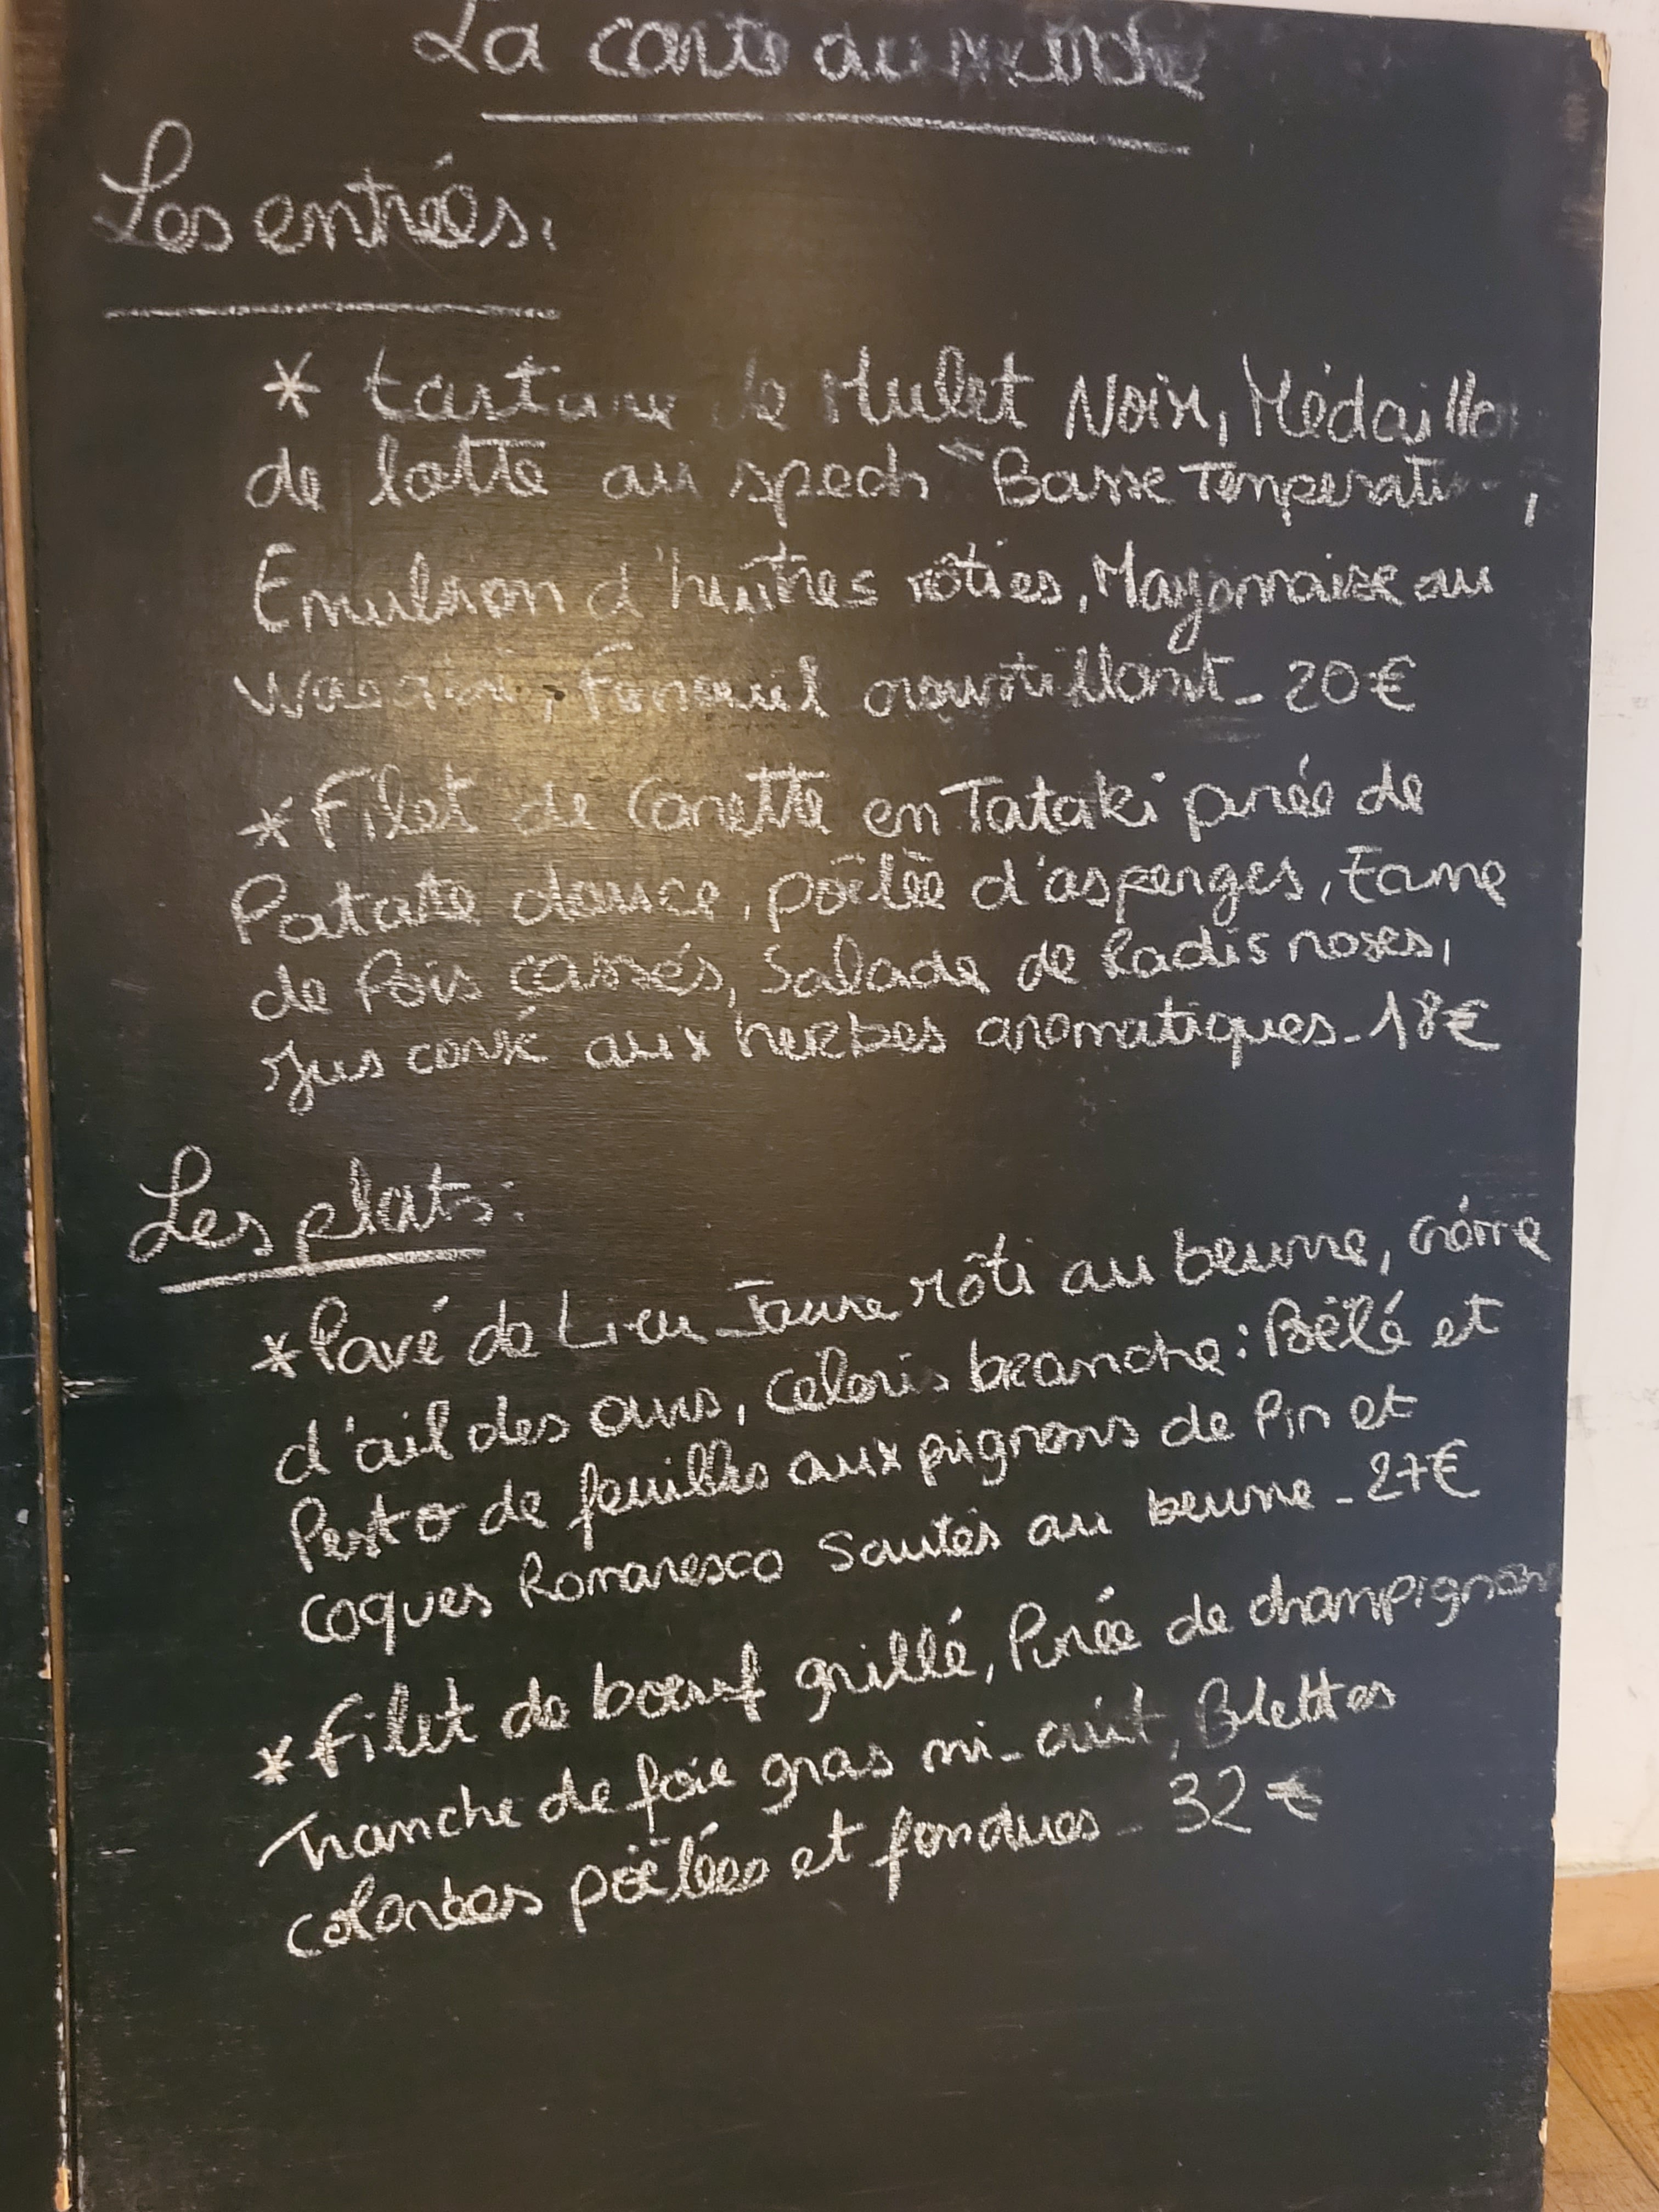 La carte du marché
Les entrées.
* tartare de Mulet Noir, Médaillon
de lotte au speck "Basse Temperature,
Emulsion d'huîtres rôties, Mayonnaise au
Wasabi, Fenouil croustillant - 20€
* Filet de Canette en Tataki purée de
Patate douce, poëlée d'asperges,
de Pois cassés, Salade de Radis roses,
Jus corsé aux herbes aromatiques - 18€
Les plats:
* Pavé de Lieu Jaune rôti au beurre, crème
d'ail des ours, Celeris branche: Poëlé et
Pesto de feuilles aux pignons de Pin et
coques Romanesco Sautés au beurre - 27€
* Filet de boeuf grillé, Purée de champignons
Tranche de foie gras mi-cuit, Blettes
colorées poëlées et fondues - 32€